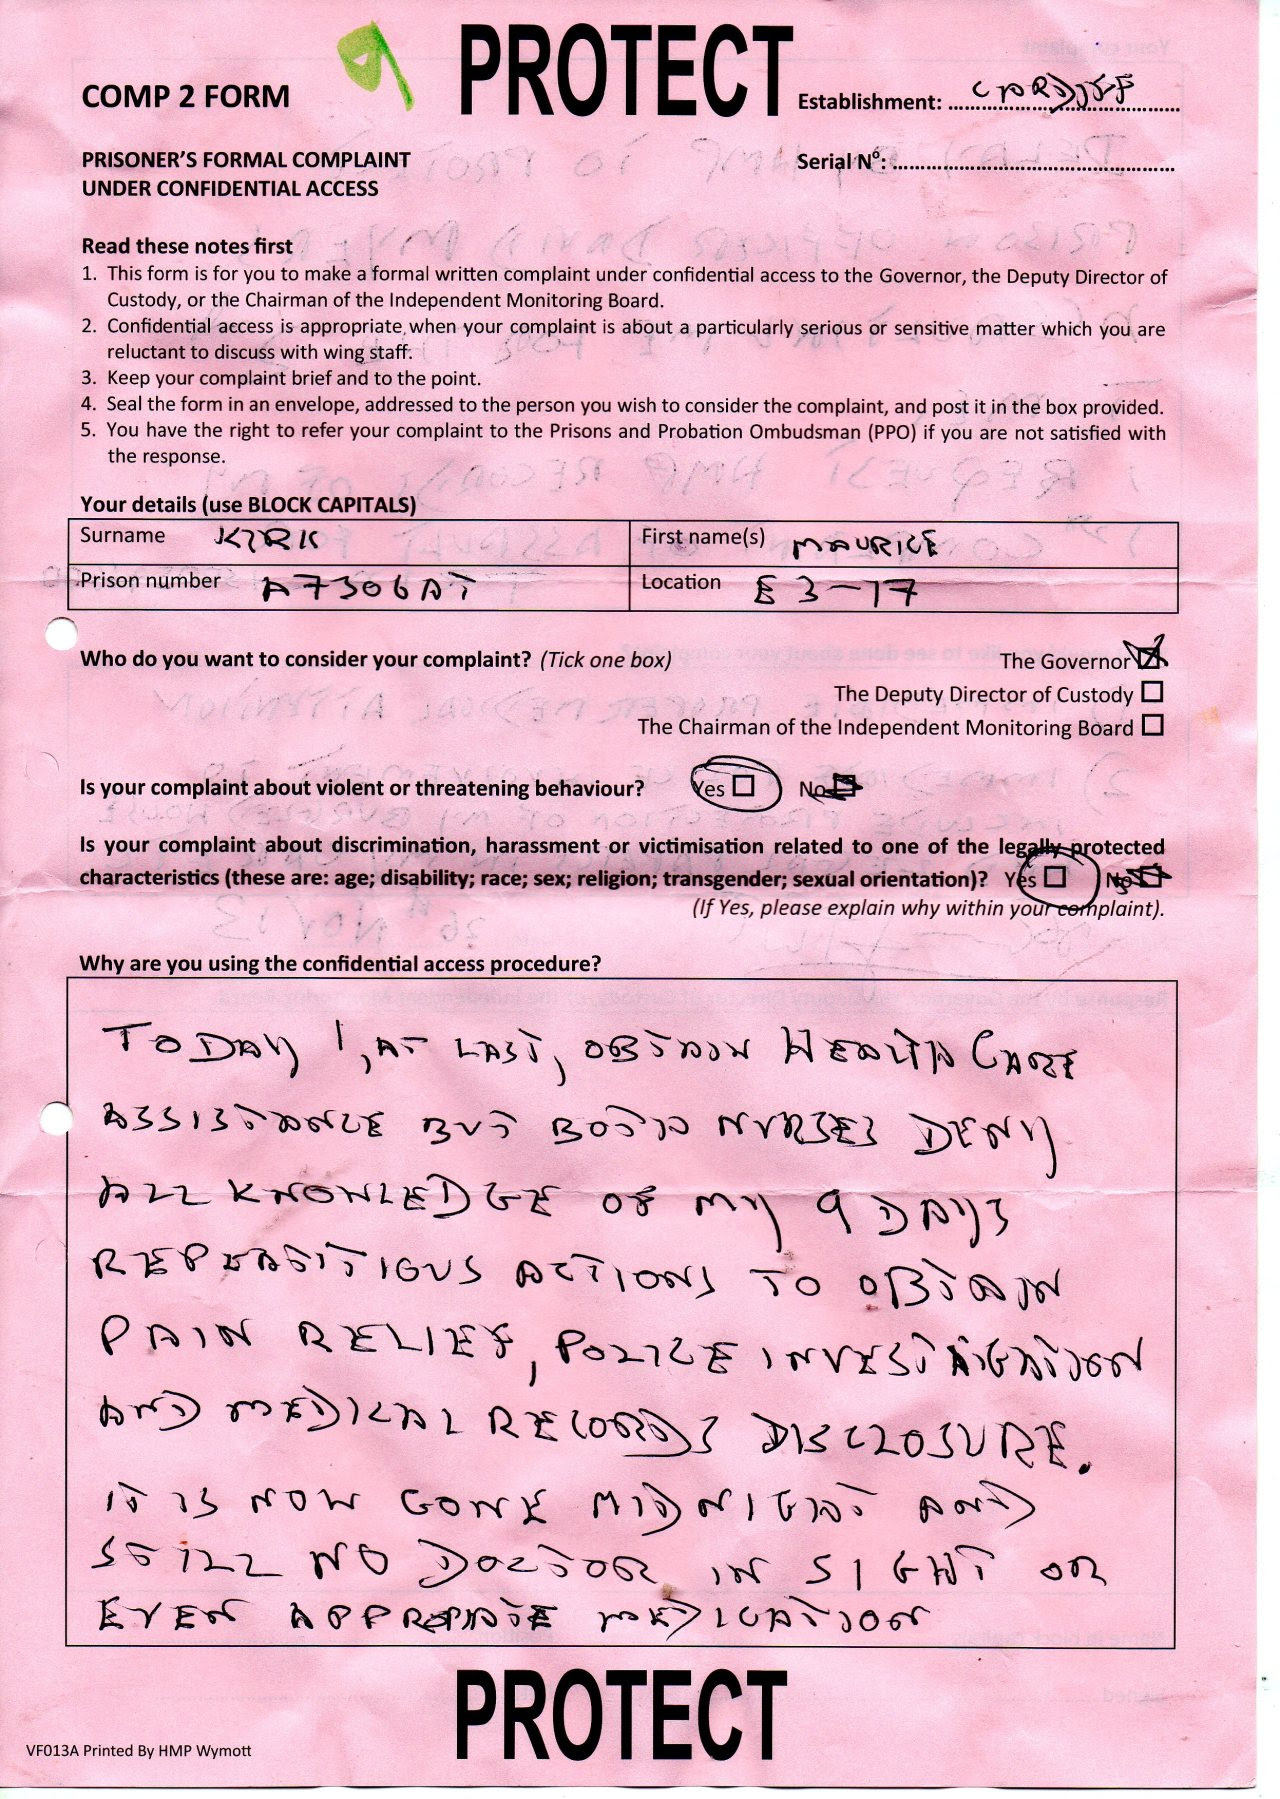 9
PROTECT
COMP 2 FORM
Establishment: CARDIFF
PRISONER'S FORMAL COMPLAINT
UNDER CONFIDENTIAL ACCESS
Serial Nº:
Read these notes first
1. This form is for you to make a formal written complaint under confidential access to the Governor, the Deputy Director of
Custody, or the Chairman of the Independent Monitoring Board.
2. Confidential access is appropriate when your complaint is about a particularly serious or sensitive matter which you are
reluctant to discuss with wing staff.
3. Keep your complaint brief and to the point.
4. Seal the form in an envelope, addressed to the person you wish to consider the complaint, and post it in the box provided.
5. You have the right to refer your complaint to the Prisons and Probation Ombudsman (PPO) if you are not satisfied with
the response.
Your details (use BLOCK CAPITALS)
Surname KIRK First name(s) MAURICE
Prison number A7306AT Location E 3-17
Who do you want to consider your complaint? (Tick one box) The Governor
The Deputy Director of Custody
The Chairman of the Independent Monitoring Board
Is your complaint about violent or threatening behaviour? Yes No
Is your complaint about discrimination, harassment or victimisation related to one of the legally protected
characteristics (these are: age; disability; race; sex; religion; transgender; sexual orientation)? Yes No
(If Yes, please explain why within your complaint).
Why are you using the confidential access procedure?
TODAY I, AT LAST, OBTAIN HEALTH CARE
ASSISTANCE BUT BOTH NURSES DENY
ALL KNOWLEDGE OF MY 9 DAYS
REPEATITIOUS ACTIONS TO OBTAIN
PAIN RELIEF, POLICE INVESTIGATION
AND MEDICAL RECORDS DISCLOSURE.
IT IS NOW GONE MIDNIGHT AND
STILL NO DOCTOR IN SIGHT OR
EVEN APPROPRIATE MEDICATION
PROTECT
VF013A Printed By HMP Wymott